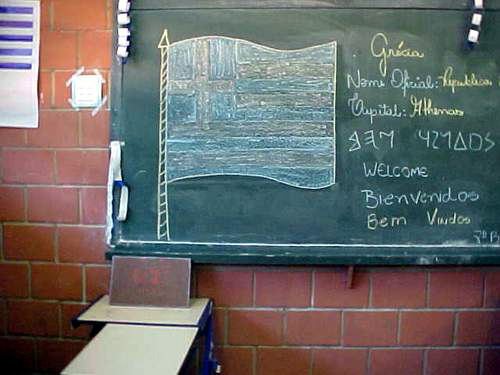 Grécia
Nome Oficial: República
Capital: Athenas
WELCOME
Bienvenidos
Bem Vindos